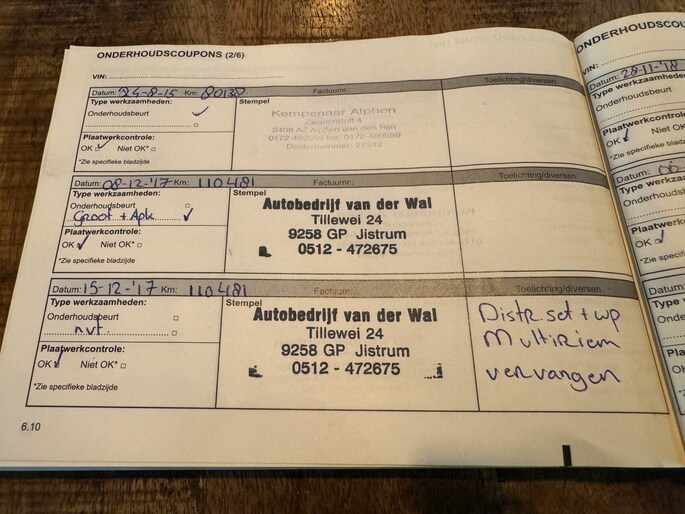 ONDERHOUDSCOUPONS (2/6)
VIN:
Datum: 24-8-15 Km: 80132 Factuurnr.: Toelichting/diversen
Type werkzaamheden: Stempel
Onderhoudsbeurt
Kempenaar Alphen
2408 AZ Alphen aan den Rijn
Plaatwerkcontrole:
OK Niet OK*
*Zie specifieke bladzijde
Datum: 08-12-'17 Km: 110481 Factuurnr.: Toelichting/diversen
Type werkzaamheden: Stempel
Onderhoudsbeurt
Groot + Apk
Autobedrijf van der Wal
Tillewei 24
9258 GP Jistrum
0512 - 472675
Plaatwerkcontrole:
OK Niet OK*
*Zie specifieke bladzijde
Datum: 15-12-'17 Km: 110481 Factuurnr.: Toelichting/diversen
Type werkzaamheden: Stempel
Onderhoudsbeurt
nvt.
Autobedrijf van der Wal
Tillewei 24
9258 GP Jistrum
0512 - 472675
Distr. set + wp
Multiriem
vervangen
Plaatwerkcontrole:
OK Niet OK*
*Zie specifieke bladzijde
6.10
ONDERHOUDSCOU
VIN:
Datum: 28-11-'18
Type werkza
Onderhoudsb
Plaatwerkc
OK Niet O
*Zie specifieke
Datum:
Type werkza
Onderhouds
Plaatwerkc
OK
*Zie specifi
Datum:
Type w
Onde
Plaa
OK
*Zie